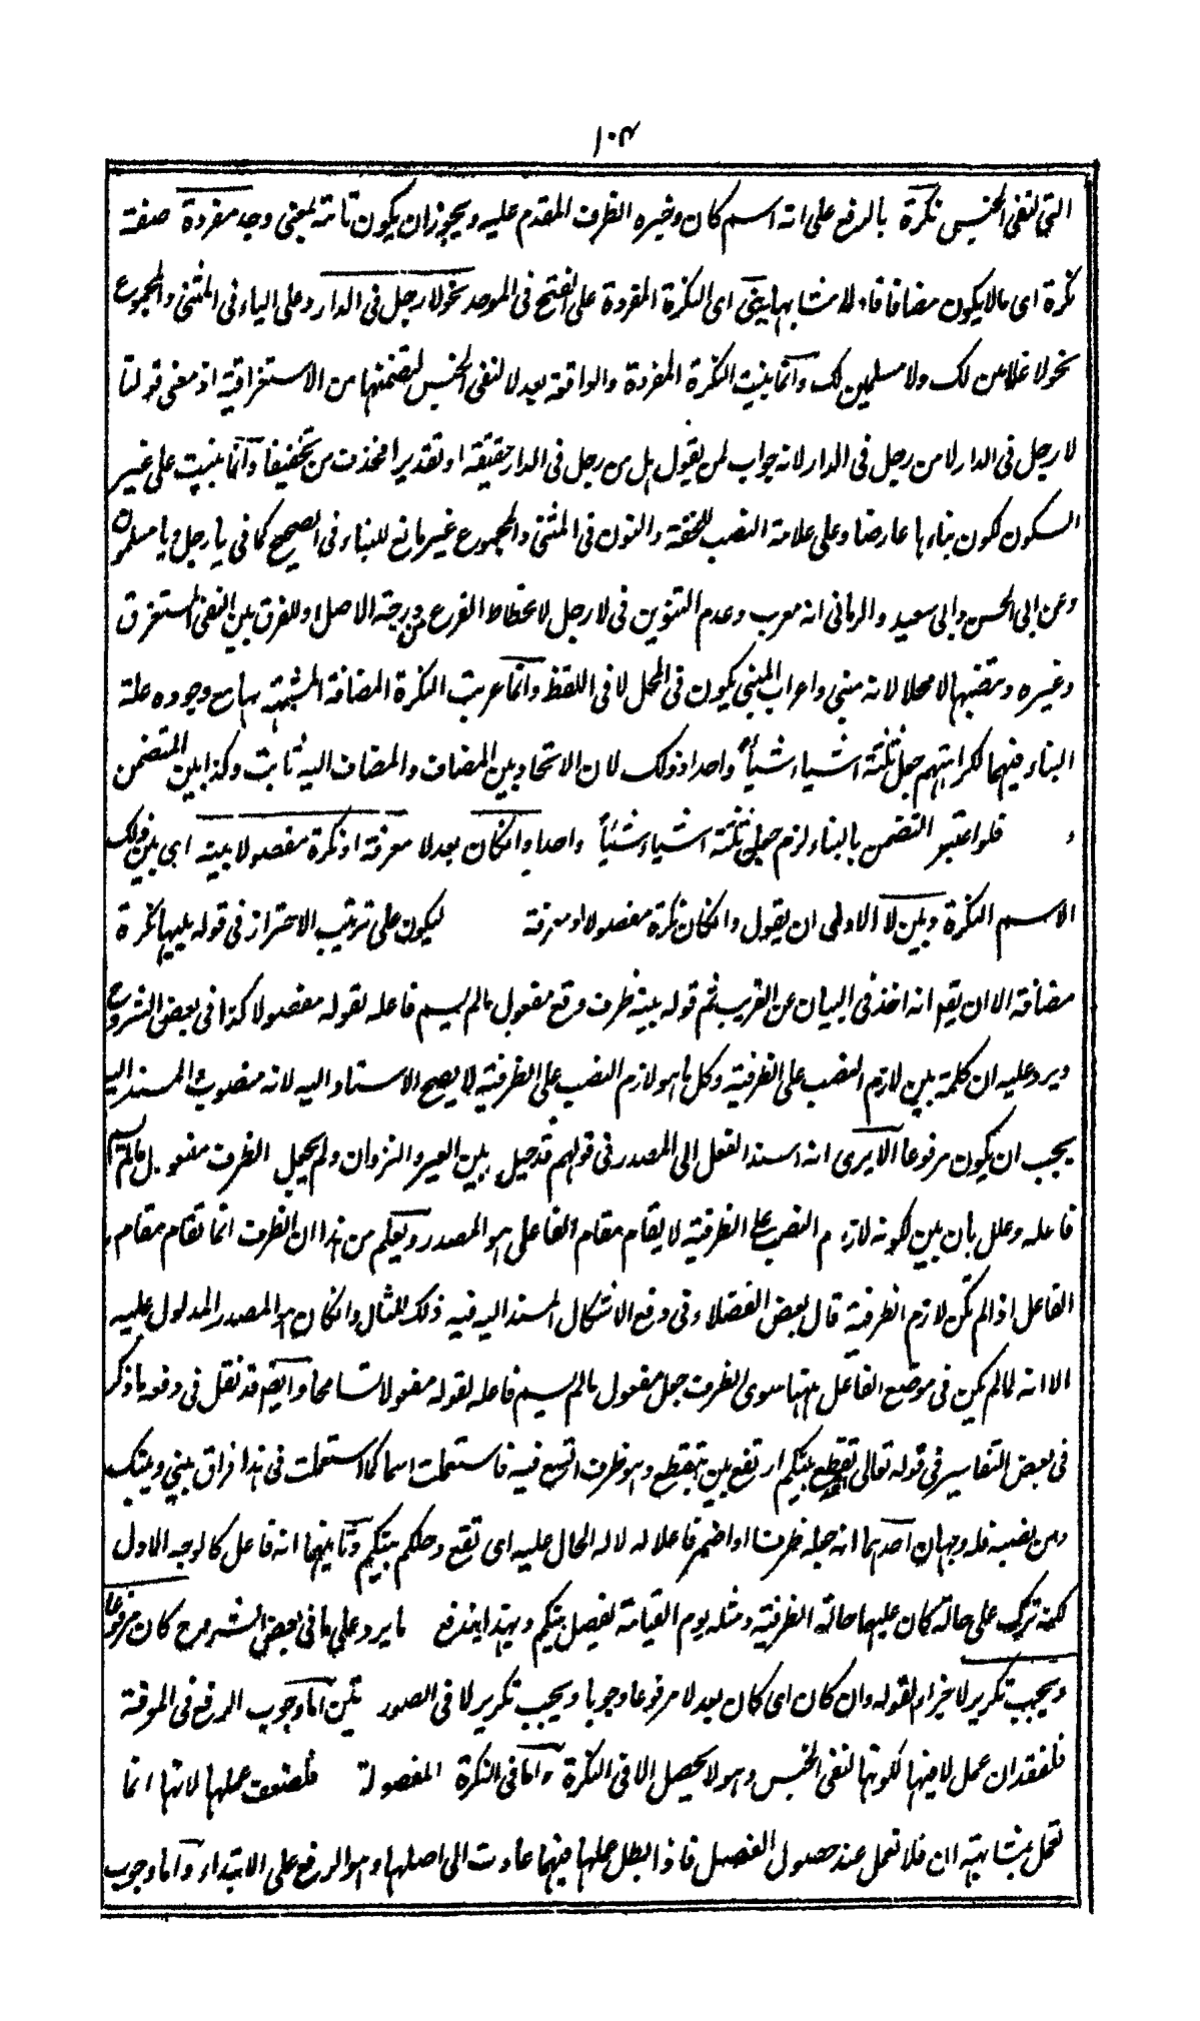 ١٠٣
التي لنفي الجنس نكرة بالرفع على انه اسم كان وخبره الظرف المقدم عليه ويجوز ان يكون تامة لمعنى وجد مفردة صفة
نكرة اى مالا يكون مضافا ولا مشابها يبنى اى النكرة المفردة على الفتح فى الموحد نحو لا رجل فى الدار وعلى الياء فى المثنى والمجموع
نحو لا غلامين لك ولا مسلمين لك وانما بنيت النكرة المفردة والواقعة بعد لا لنفى الجنس لتضمنها من الاستغراقية اذ معنى قولنا
لا رجل فى الدار لا من رجل فى الدار لانه جواب لمن يقول هل من رجل فى الدار حقيقة او تقديرا فحذفت من تخفيفا وانما بنيت على غير
السكون لكون بناءها عارضا وعلى علامة النصب للخفة والنون فى المثنى والمجموع غير مانع للبناء فى الصحيح كما فى يا رجل ويا مسلمون
وعن ابى الحسن وابى سعيد والرمانى انه معرب وعدم التنوين فى لا رجل لانحطاط الفرع عن درجة الاصل او للفرق بين النفى المستغرق
وغيره ونصبها لا محلا لانه مبنى واعراب المبنى يكون فى المحل لا فى اللفظ وانما عربت النكرة المضافة المشبهة بها مع وجود علة
البناء فيهما لكراهتهم جعل ثلثة اشياء شيأ واحدا وذلك لان الاتحاد بين المضاف والمضاف اليه ثابت وكذا بين المتضمن
و فلو اعتبر التضمن بالبناء لزم جعل ثلثة اشياء شئيأ واحدا وانكان بعد لا معرفة او نكرة مفصولا بينه اى بين ذلك
الاسم النكرة وبين لا الاولى ان يقول وانكان نكرة مفصولا او معرفة ليكون على ترتيب الاحتراز فى قوله يليها نكرة
مضافة الا ان يقو انه اخذ فى البيان عن القريب ثم قوله بينه ظرف وقع مفعول مالم يسم فاعله لقوله مفصولا كذا فى بعض الشروح
ويرد عليه ان كلمة بين لازم النصب على الظرفية وكل ما هو لازم النصب على الظرفية لا يصح الاسناد اليه لانه منصوب والمسند اليه
يجب ان يكون مرفوعا الا يرى انه اسند الفعل الى المصدر فى قولهم قد حيل بين العير والنزوان ولم يجعل الظرف مفعول مالم يسم
فاعله وعلل بان بين لكونه لازم النصب على الظرفية لا يقام مقام الفاعل هو المصدر ويعلم من هذا ان الظرف انما تقام مقام
الفاعل اذا لم تكن لازم الظرفية قال بعض الفضلاء وفى دفع الاشكال المسند اليه فيه ذلك المثال وانكان هو المصدر المدلول عليه
الا انه لما لم يكن فى موضع الفاعل ههنا سوى الظرف جعل مفعول مالم يسم فاعله لقوله مفعولا تسامحا وايضا قد نقل فى دفعه ما ذكر
فى بعض التفاسير فى قوله تعالى تقطع بينكم ارتفع بين بتقطع وهو ظرف اتسع فيه فاستعملت اسما كما استعملت فى هذا فراق بينى وبينك
ومن نصبه فله وجهان احدهما انه جعله ظرفا او اضمر فاعلا له لدلالة الحال عليه اى تقطع وصلكم بينكم وثانيهما انه فاعل كالوجه الاول
لكنه ترك على حالة كان عليها حالة الظرفية ومثله يوم القيامة يفصل بينكم وبهذا يندفع ما يرد على ما فى بعض الشروح كان مرفوعا
ويجب تكرير لا خبر له لقوله وان كان اى كان بعد لا مرفوعا وجوبا ويجب تكرير لا فى الصورتين اما وجوب الرفع فى المعرفة
فلفقدان عمل لا فيها لكونها لنفى الجنس وهو لا يحصل الا فى النكرة واما فى النكرة المفصولة فلضعف عملها لانها انما
تعمل بمشابهة ان فلا تعمل عند حصول الفصل فاذا بطل عملها فيهما عادت الى اصلها وهو الرفع على الابتداء واما وجوب